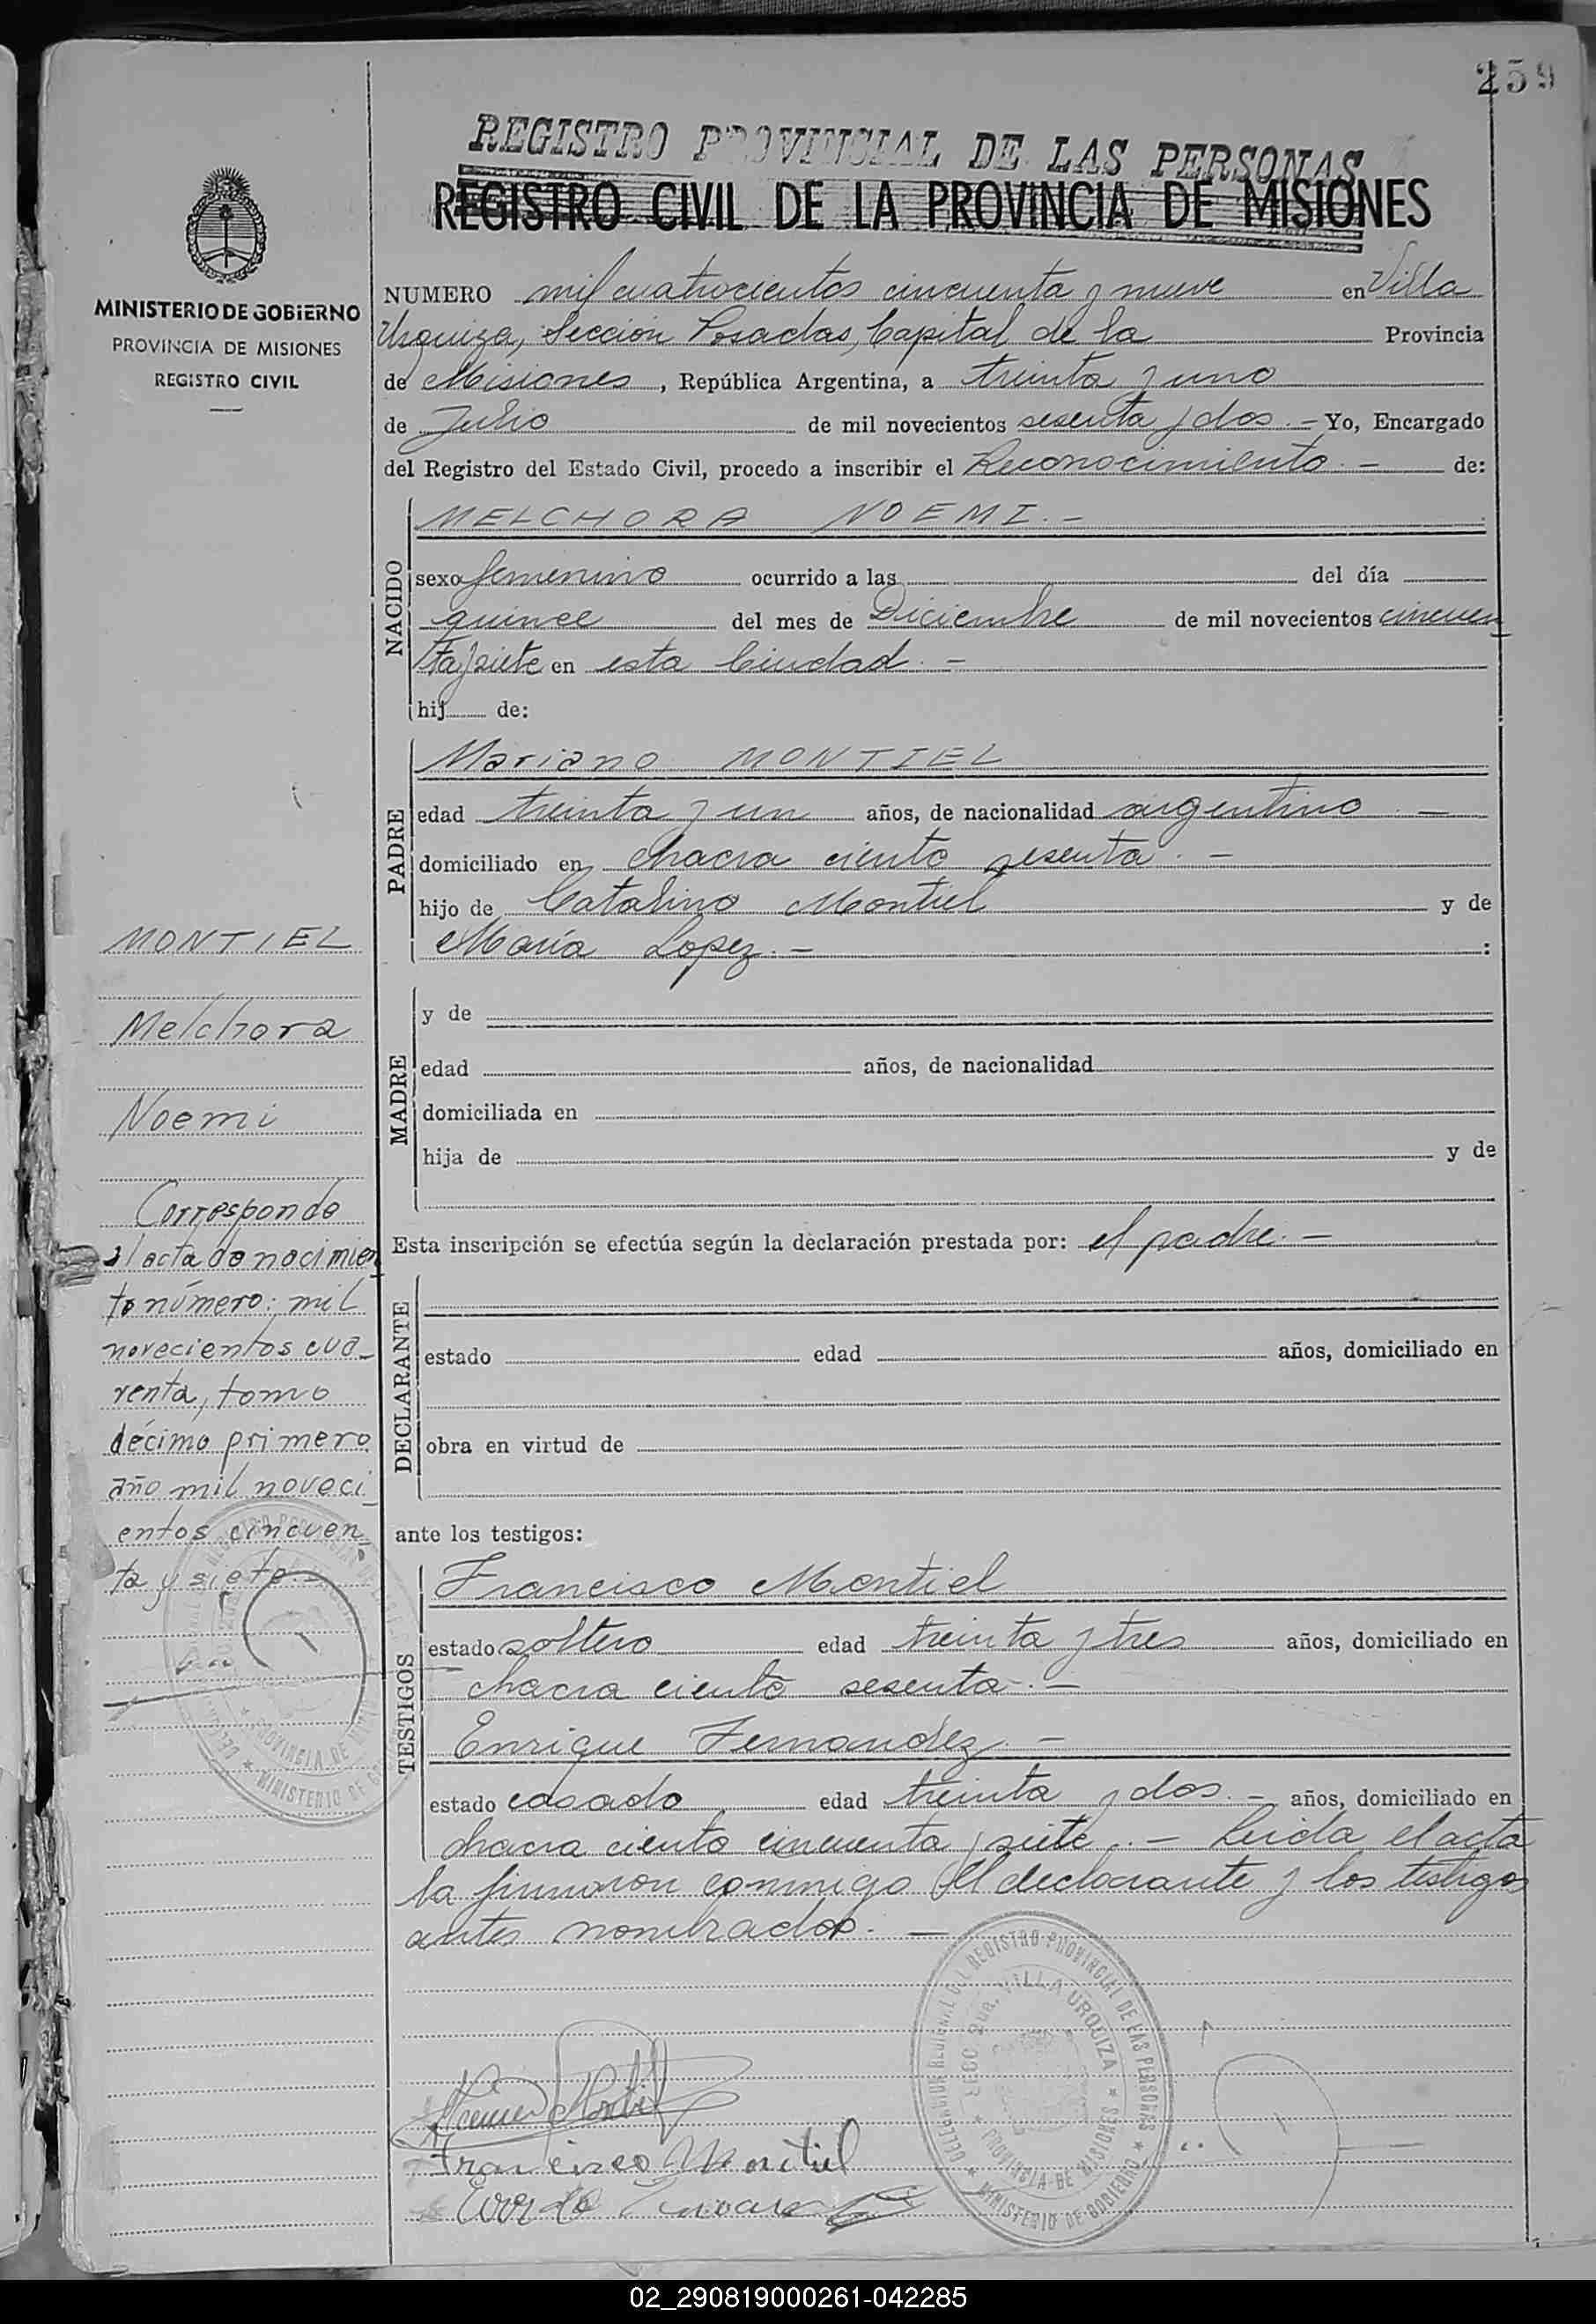 259
REGISTRO PROVINCIAL DE LAS PERSONAS
REGISTRO CIVIL DE LA PROVINCIA DE MISIONES
MINISTERIO DE GOBIERNO
PROVINCIA DE MISIONES
REGISTRO CIVIL
NUMERO mil cuatrocientos cincuenta y nueve en Villa
Urquiza, Sección Posadas, Capital de la Provincia
de Misiones, República Argentina, a treinta y uno
de Julio de mil novecientos sesenta y dos.- Yo, Encargado
del Registro del Estado Civil, procedo a inscribir el Reconocimiento.- de:
NACIDO
MELCHORA NOEMI.-
sexo femenino ocurrido a las del día
quince del mes de Diciembre de mil novecientos cincuen
ta y siete en esta Ciudad.-
hij de:
PADRE
Mariano MONTIEL
edad treinta y un años, de nacionalidad argentino.-
domiciliado en chacra ciento sesenta.-
hijo de Catalino Montiel y de
María Lopez.- :
MADRE
y de
edad años, de nacionalidad
domiciliada en
hija de y de
Esta inscripción se efectúa según la declaración prestada por: el padre.-
DECLARANTE
estado edad años, domiciliado en
obra en virtud de
ante los testigos:
TESTIGOS
Francisco Montiel
estado soltero edad treinta y tres años, domiciliado en
chacra ciento sesenta.-
Enrique Fernandez.-
estado casado edad treinta y dos.- años, domiciliado en
chacra ciento cincuenta y siete.- Leida el acta
la firmaron conmigo el declarante y los testigos
antes nombrados.-
MONTIEL
Melchora
Noemi
Corresponde
al acta de nacimien
to número: mil
novecientos cua-
renta, tomo
décimo primero
año mil noveci-
entos cincuen
ta y siete.-
DELEGACION REGIONAL DEL REGISTRO PROVINCIAL DE LAS PERSONAS
VILLA URQUIZA
PROVINCIA DE MISIONES
MINISTERIO DE GOBIERNO
PROVINCIA DE
MINISTERIO DE
Francisco Montiel
02_290819000261-042285